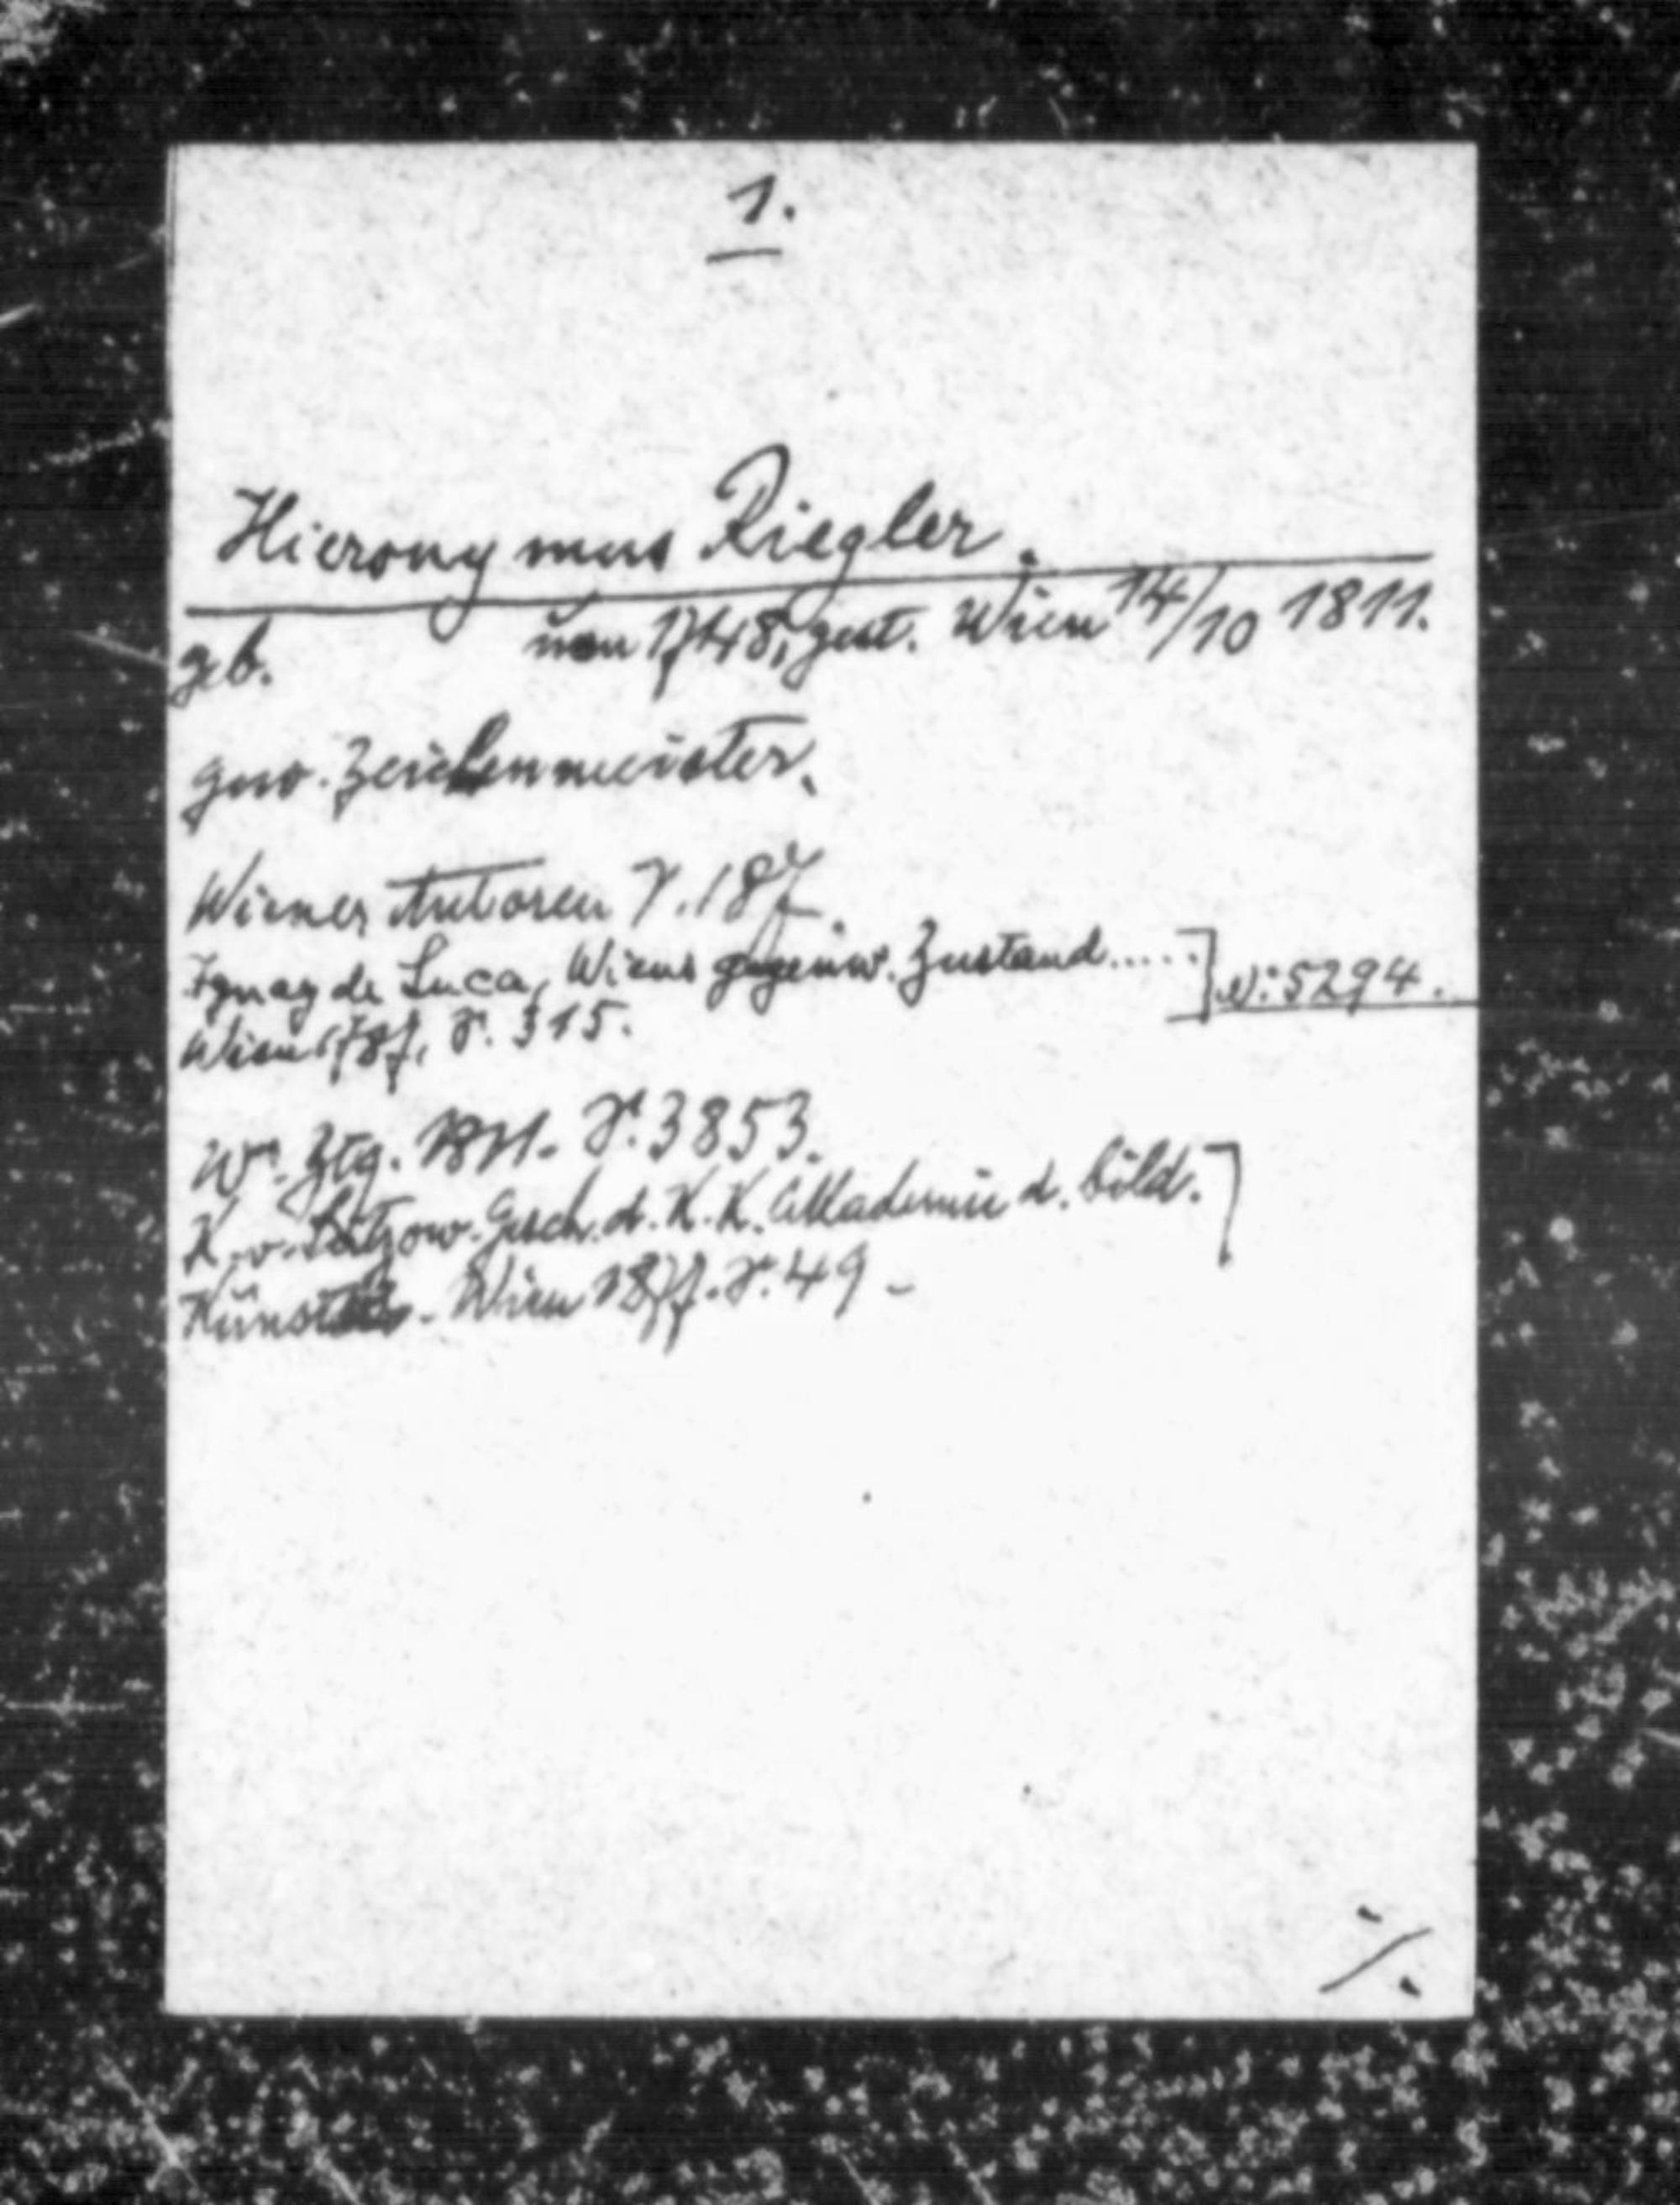 1.
Hieronymus Riegler.
geb. um 1748, gest. Wien 14/10 1811.
gew. Zeichenmeister.
Wiener Autoren S. 187.
Ignaz de Luca, Wiens gegenw. Zustand.....] N: 5294.
Wien 1787, S. 315.
Wr. Ztg. 1811. S. 3853.
K. v. Lützow. Gesch. d. K. K. Akademie d. bild.]
Künste. Wien 1877. S. 49 -
./.